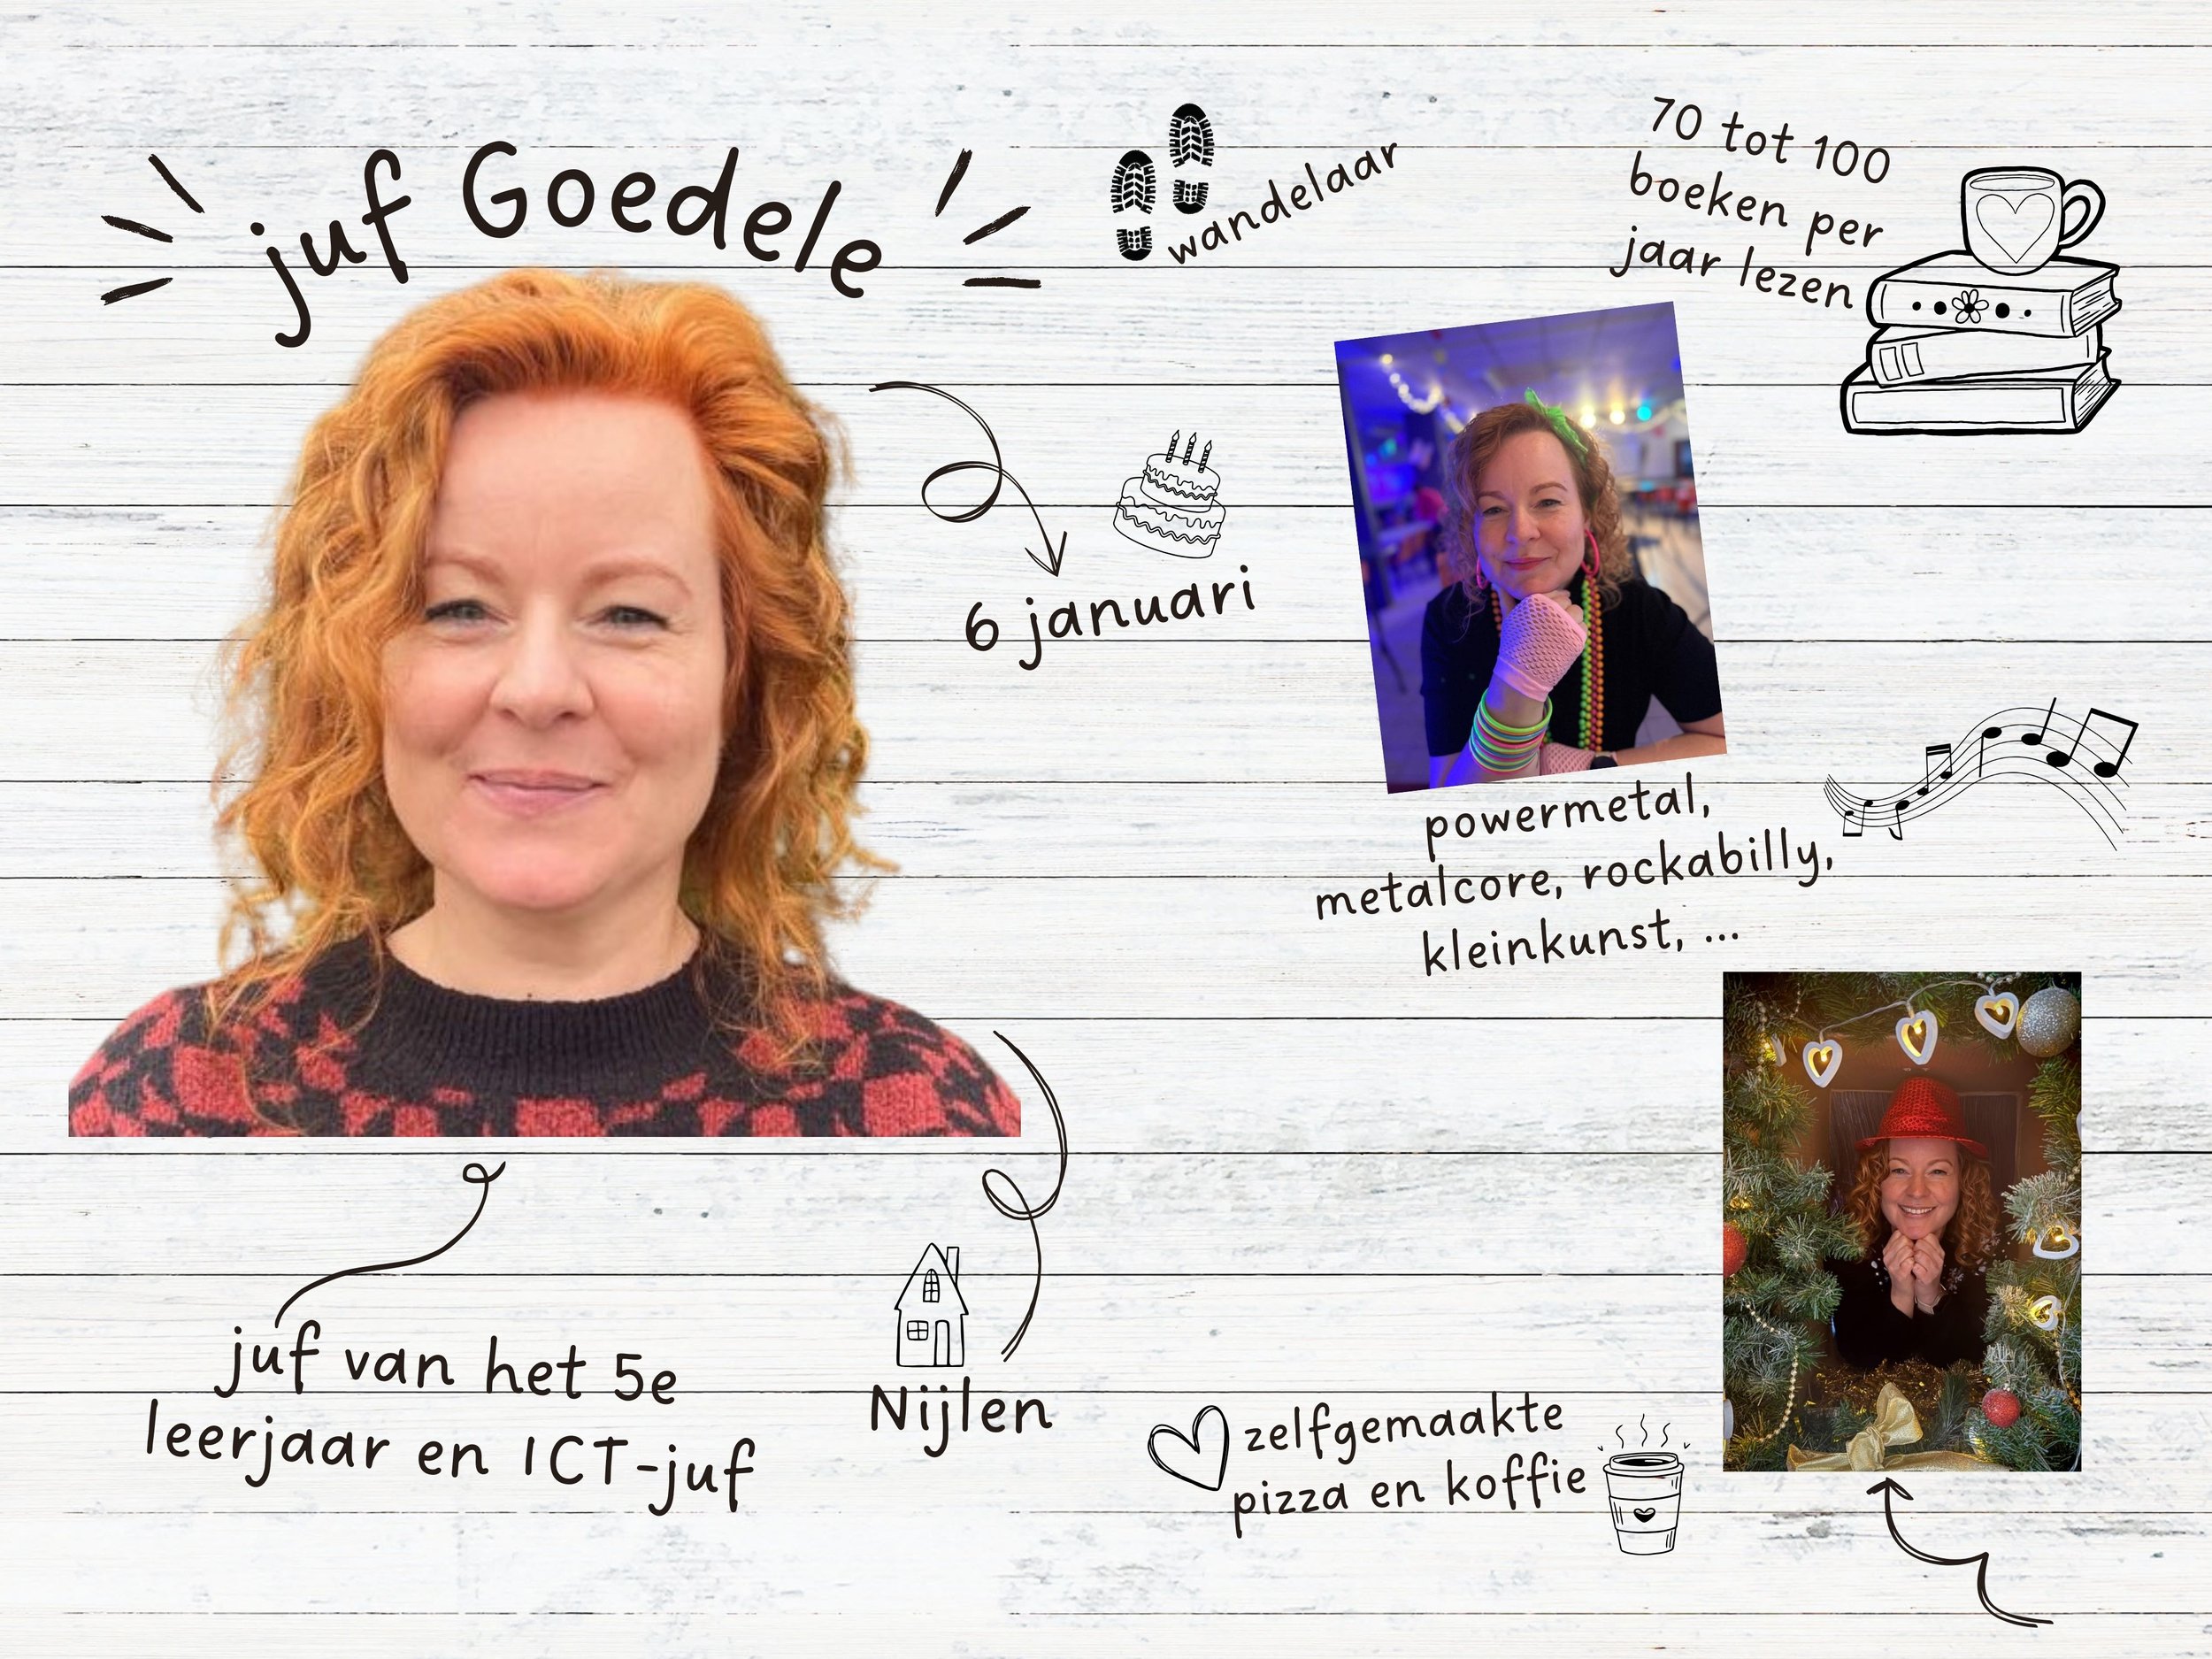 juf Goedele
wandelaar
70 tot 100
boeken per
jaar lezen
6 januari
powermetal,
metalcore, rockabilly,
kleinkunst, ...
juf van het 5e
leerjaar en ICT-juf
Nijlen
zelfgemaakte
pizza en koffie